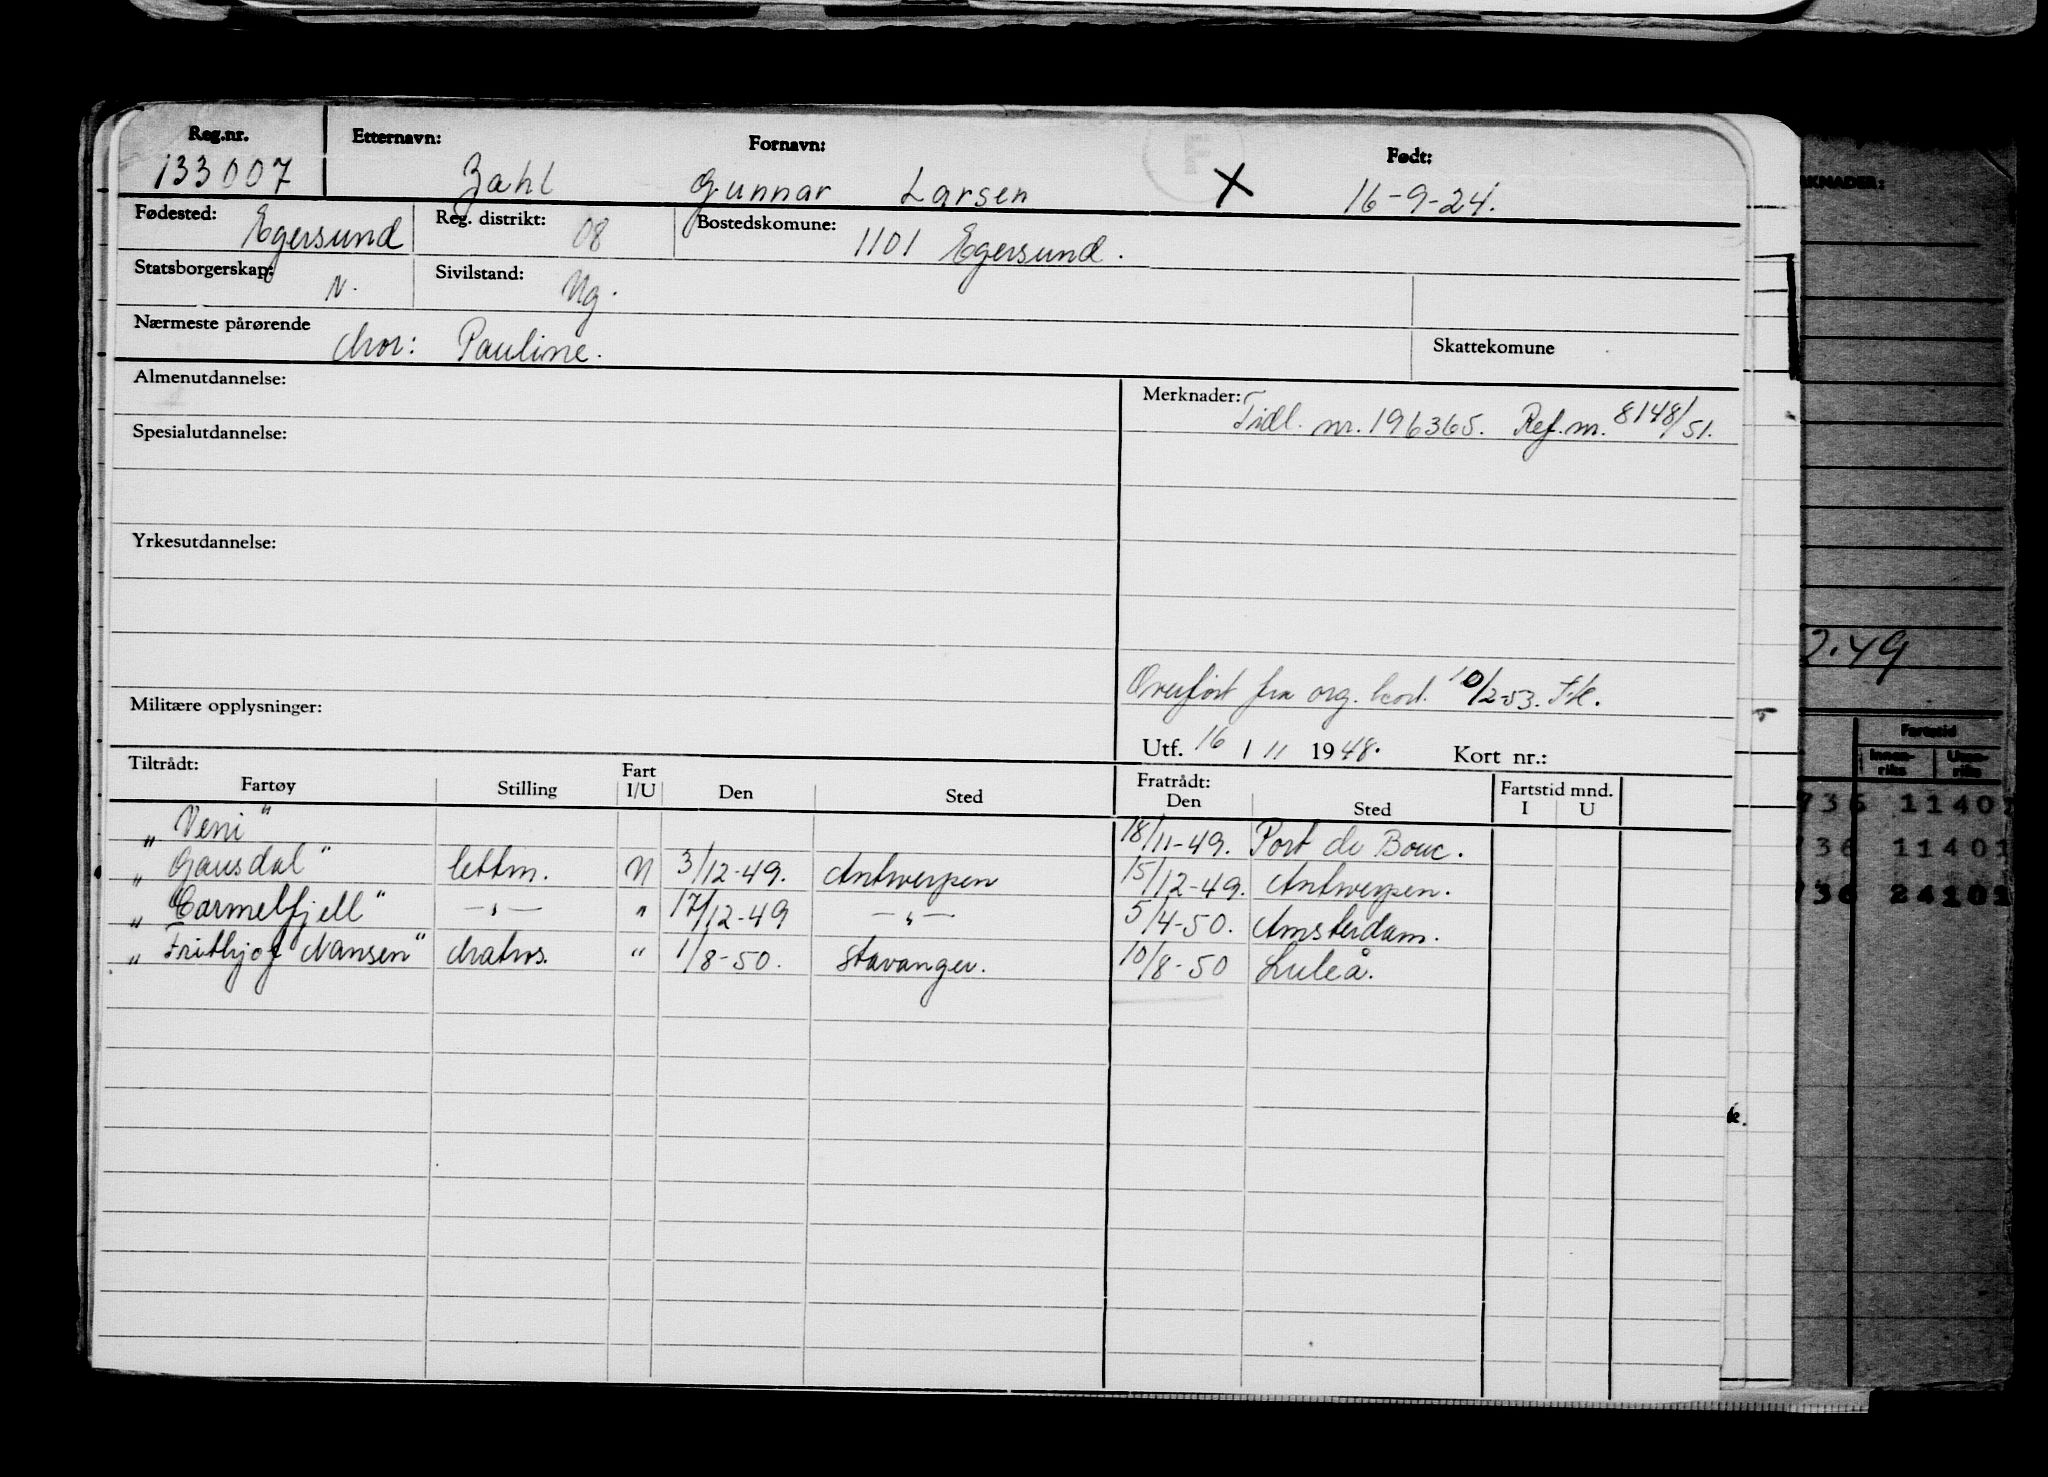 Reg.nr. Etternavn: Fornavn: Født:
133007 Zahl Gunnar Larsen X 16-9-24.
Fødested: Egersund Reg. distrikt: 08 Bostedskomune: 1101 Egersund.
Statsborgerskap: N. Sivilstand: Ug.
Nærmeste pårørende Mor: Pauline. Skattekomune
Almenutdannelse: Merknader: Tidl. nr. 196365. Ref. nr. 8148/51.
Spesialutdannelse:
Yrkesutdannelse:
Overført fra org. kort. 10/2-53.
Militære opplysninger:
Utf. 16 / 11 1948. Kort nr.:
Tiltrådt: Fratrådt: Fartstid mnd.
Fartøy Stilling Fart I/U Den Sted Den Sted I U
„Veni" 18/11-49. Port de Bouc.
„Gausdal" lettm. U 3/12-49. Antwerpen 15/12-49. Antwerpen.
„Carmelfjell" —„— " 17/12-49 —„— 5/4-50. Amsterdam.
„Frithjof Nansen" Matros. " 1/8-50. Stavanger. 10/8-50 Luleå.
KNADER:
2.49
Fartstid
Innen-riks Uten-riks
736 11401
736 11401
736 24101
k.